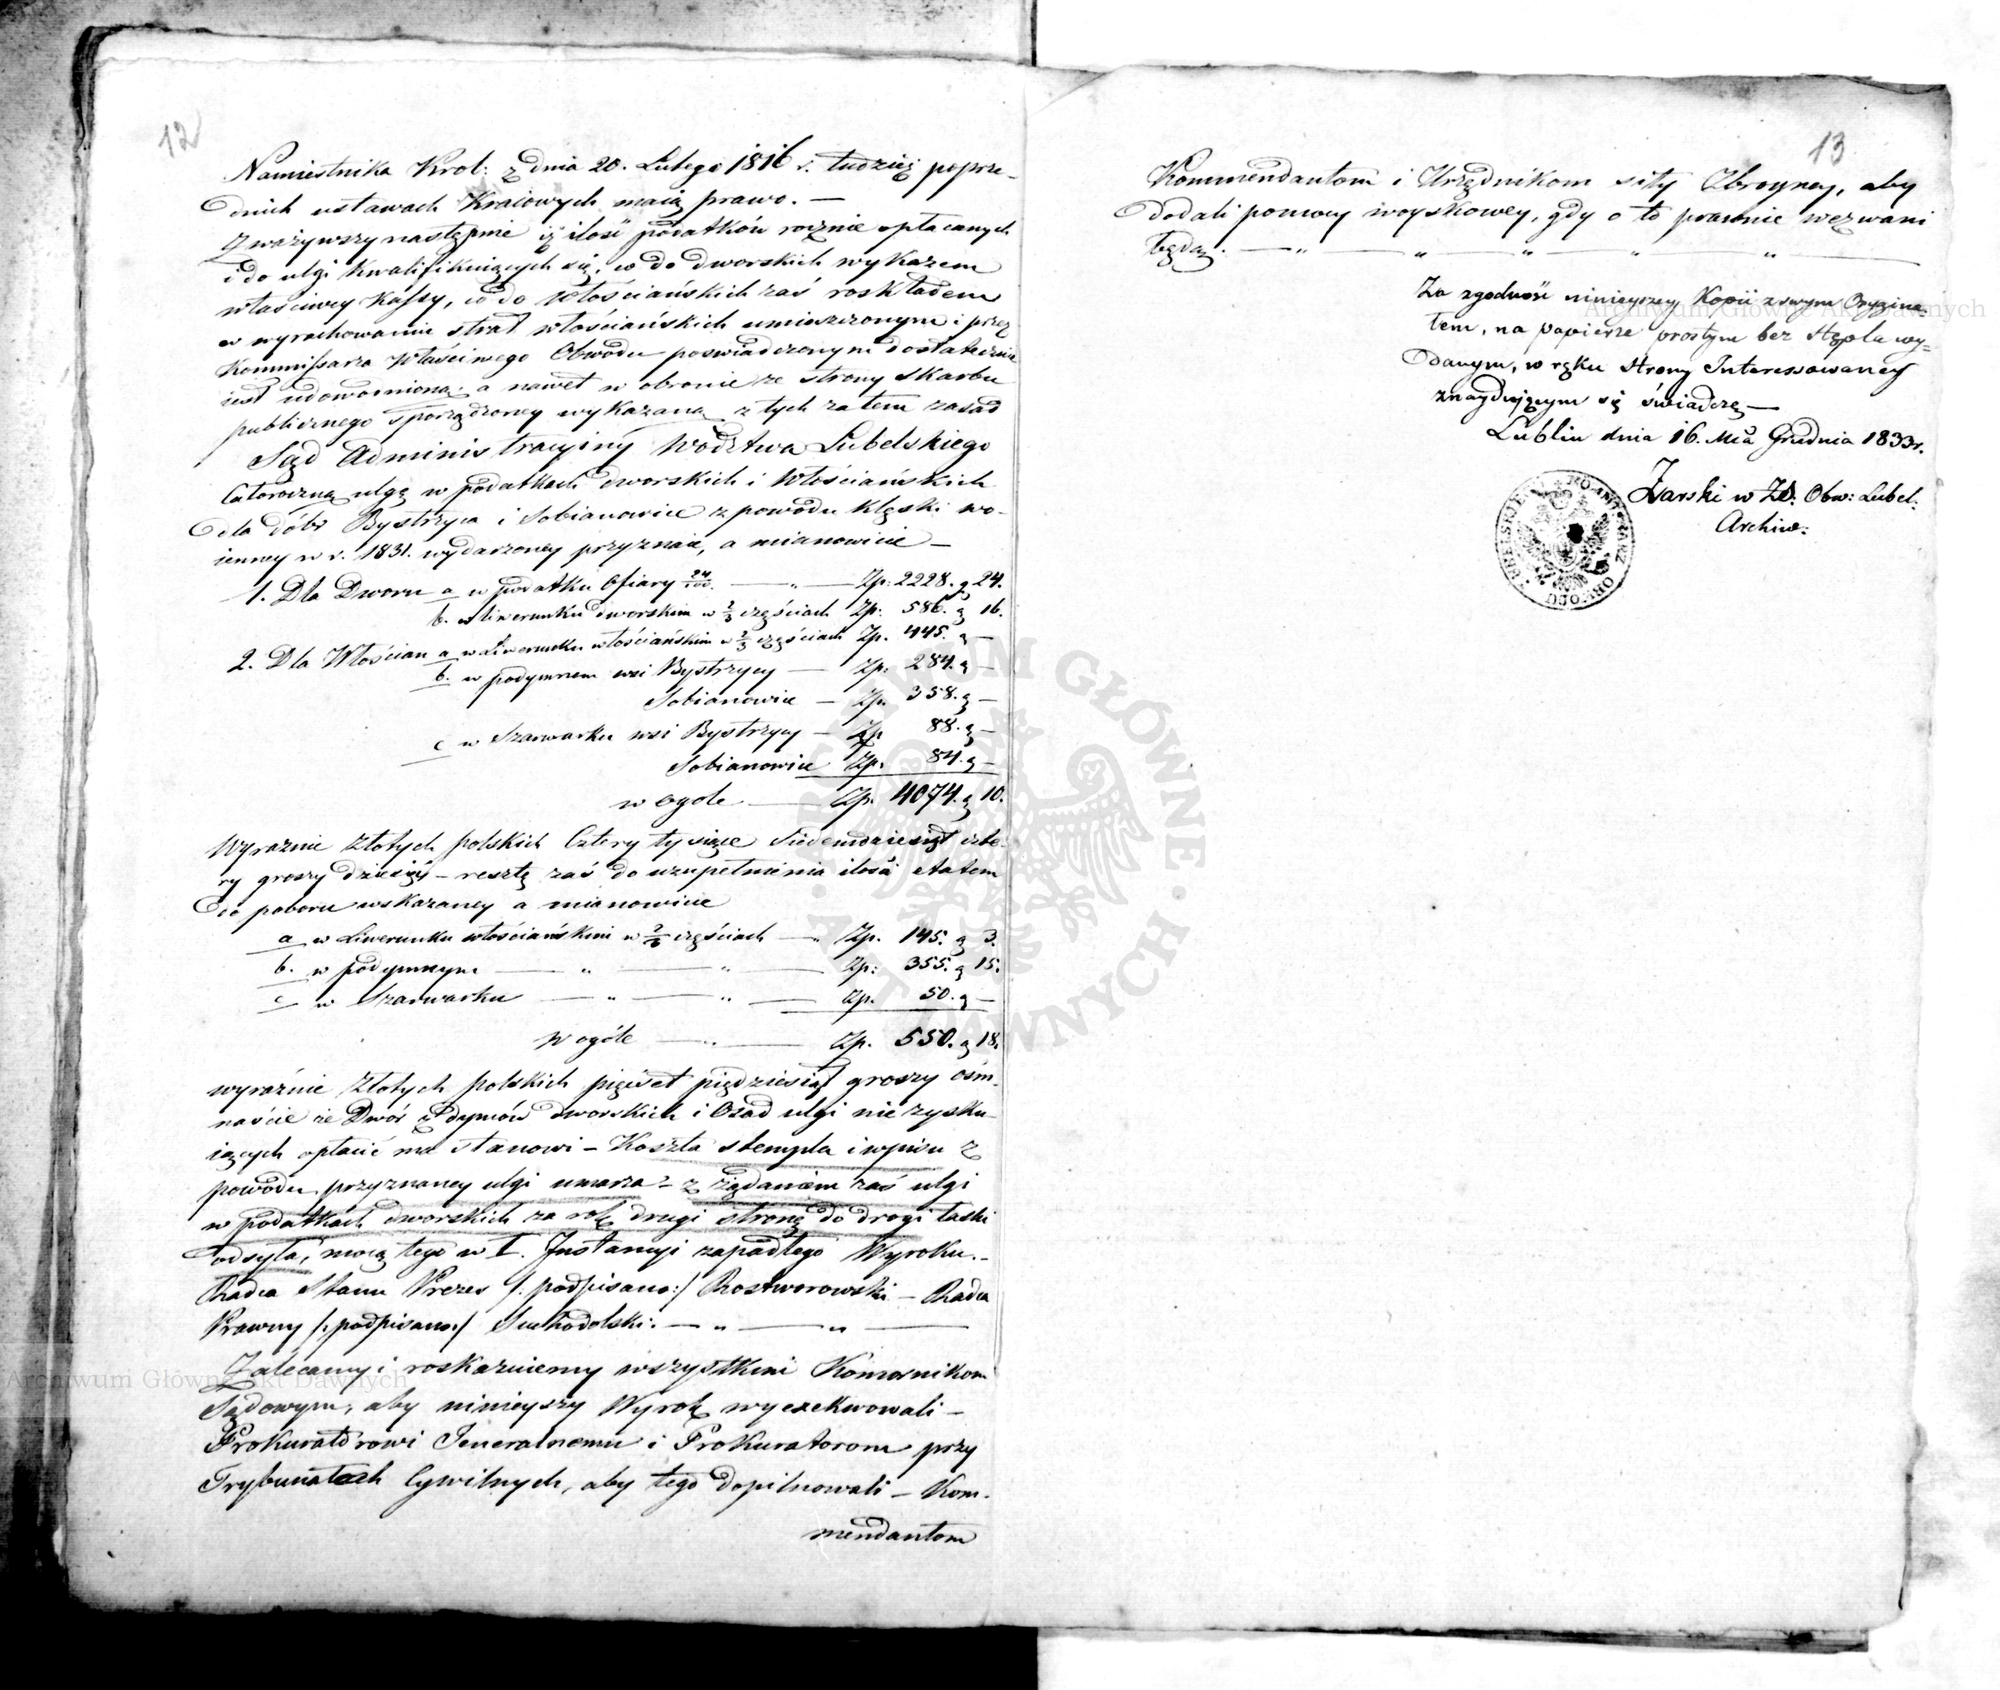 12
Namiestnika Krol: z dnia 20. Lutego 1816 r. tudzież poprze-
dnich ustawach Kraiowych maią prawo. —
Zważywszy następnie iż ilość podatków rocznie opłacanych
i do ulgi kwalifikuiących się, co do dworskich wykazem
właściwey Kassy, co do włościańskich zaś roskładem
w wyrachowaniu strat włościańskich umieszczonym i przez
Kommissarza właściwego Obwodu poświadczonym dostatecznie
iest udowodnioną; a nawet w obronie ze strony Skarbu
publicznego sporządzoney wykazaną z tych zatem zasad
Sąd Administracyiny Wodztwa Lubelskiego
Całoroczną ulgę w podatkach dworskich i włościańskich
dla dóbr Bystrzyca i Sobianowice z powodu klęski wo-
ienney w r. 1831. wydarzoney przyznaie, a mianowicie —
1. Dla Dworu a w podatku Ofiary 24/100. — „ — Zp: 2228. g 24.
b. w liwerunku dworskim w 2/3 częściach Zp. 586. g 16.
2. Dla Włościan a w Liwerunku włościańskim w 2/3 częściach Zp. 445. g —
b. w podymnem wsi Bystrzycy — Zp. 284. g —
Sobianowice — Zp. 358. g —
c w Szarwarku wsi Bystrzycy — Zp 88. g —
Sobianowice Zp. 84. g —
w ogóle — Zp. 4074. g 10.
Wyraźnie złotych polskich Cztery tysiące Siedemdziesiąt czte-
ry groszy dziesięć – resztę zaś do uzupełnienia ilości etatem
do poboru wskazaney a mianowicie
a w Liwerunku włościańskim w 2/3 częściach — „ Zp. 145. g 3.
b. w podymnym — „ — „ — Zp: 355. g 15.
c w Szarwarku — „ — „ — Zp. 50. g —
W ogóle — „ — Zp. 550. g 18.
wyraźnie Złotych polskich pięćset pięćdziesiąt groszy ośm-
naście że Dwór z dymów dworskich i Osad ulgi nie zysku-
iących opłacić ma stanowi – Koszta stempla i wpisu z
powodu przyznaney ulgi umarza – z żądaniem zaś ulgi
w podatkach dworskich za rok drugi stronę do drogi łaski
odsyła, mocą tego w I. Instancyi zapadłego Wyroku. –
Radca Stanu Prezes /: podpisano:/ Rostworowski – Radca
Prawny /: podpisano:/ Suchodolski. — „ — „ —
Zalecamy i roskazuiemy wszystkim Komornikom
Sądowym, aby ninieyszy Wyrok wyexekwowali –
Prokuratorowi Jeneralnemu i Prokuratorom przy
Trybunałach Cywilnych, aby tego dopilnowali – Kom-
mendantom
13
Kommendantom i Urzędnikom siły Zbroyney, aby
dodali pomocy woyskowey, gdy o to prawnie wezwani
będą. — „ — „ — „ — „ — „ —
Za zgodność ninieyszey Kopii z swym Orygina-
łem, na papierze prostym bez stępla wy=
danym, w ręku Strony Interessowaney
znayduiącym się świadczę —
Lublin dnia 16. Mca Grudnia 1833 r.
Żarski w Zd. Obw: Lubel:
Archiw:
Archiwum Główne Akt Dawnych
Archiwum Główne Akt Dawnych
ARCHIWUM GŁÓWNE AKT DAWNYCH